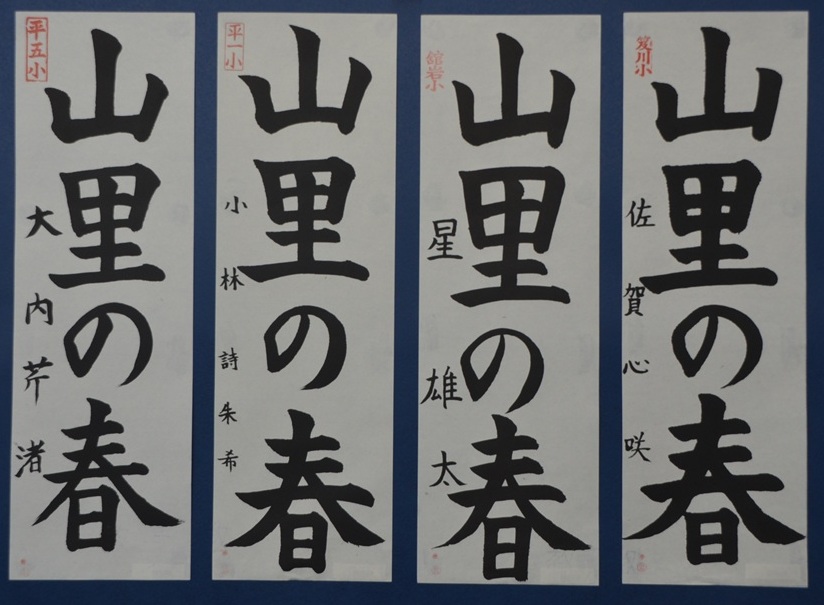 山里の春
笈川小
佐賀心咲
山里の春
舘岩小
星雄太
山里の春
平一小
小林詩朱希
山里の春
平五小
大内芹渚